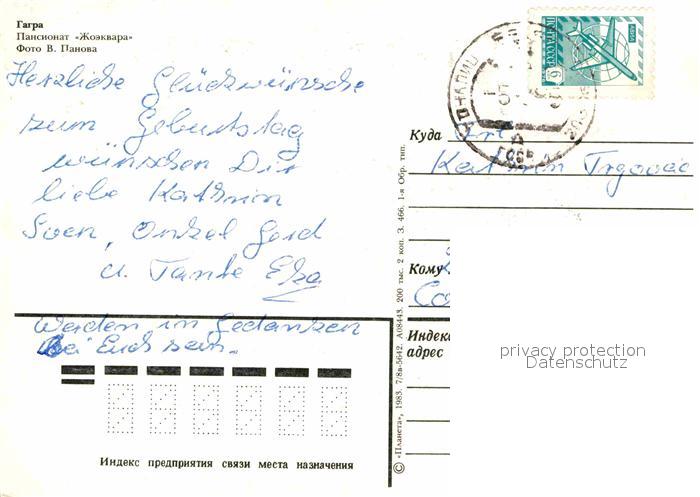 Гагра
Пансионат «Жоэквара»
Фото В. Панова
Herzliche Glückwünsche
zum Geburtstag
wünschen Dir
liebe Kathrin
Sven, Onkel Gerd
u. Tante Eka
Werden in Gedanken
bei Euch sein.
Индекс предприятия связи места назначения
© «Планета», 1983. 7/8в-5642. А08443. 200 тыс. 2 коп. З. 466. 1-я Обр. тип.
АВИА
ПОЧТА СССР
6
Куда
Kathrin
Кому
Индекс
адрес
privacy protection
Datenschutz